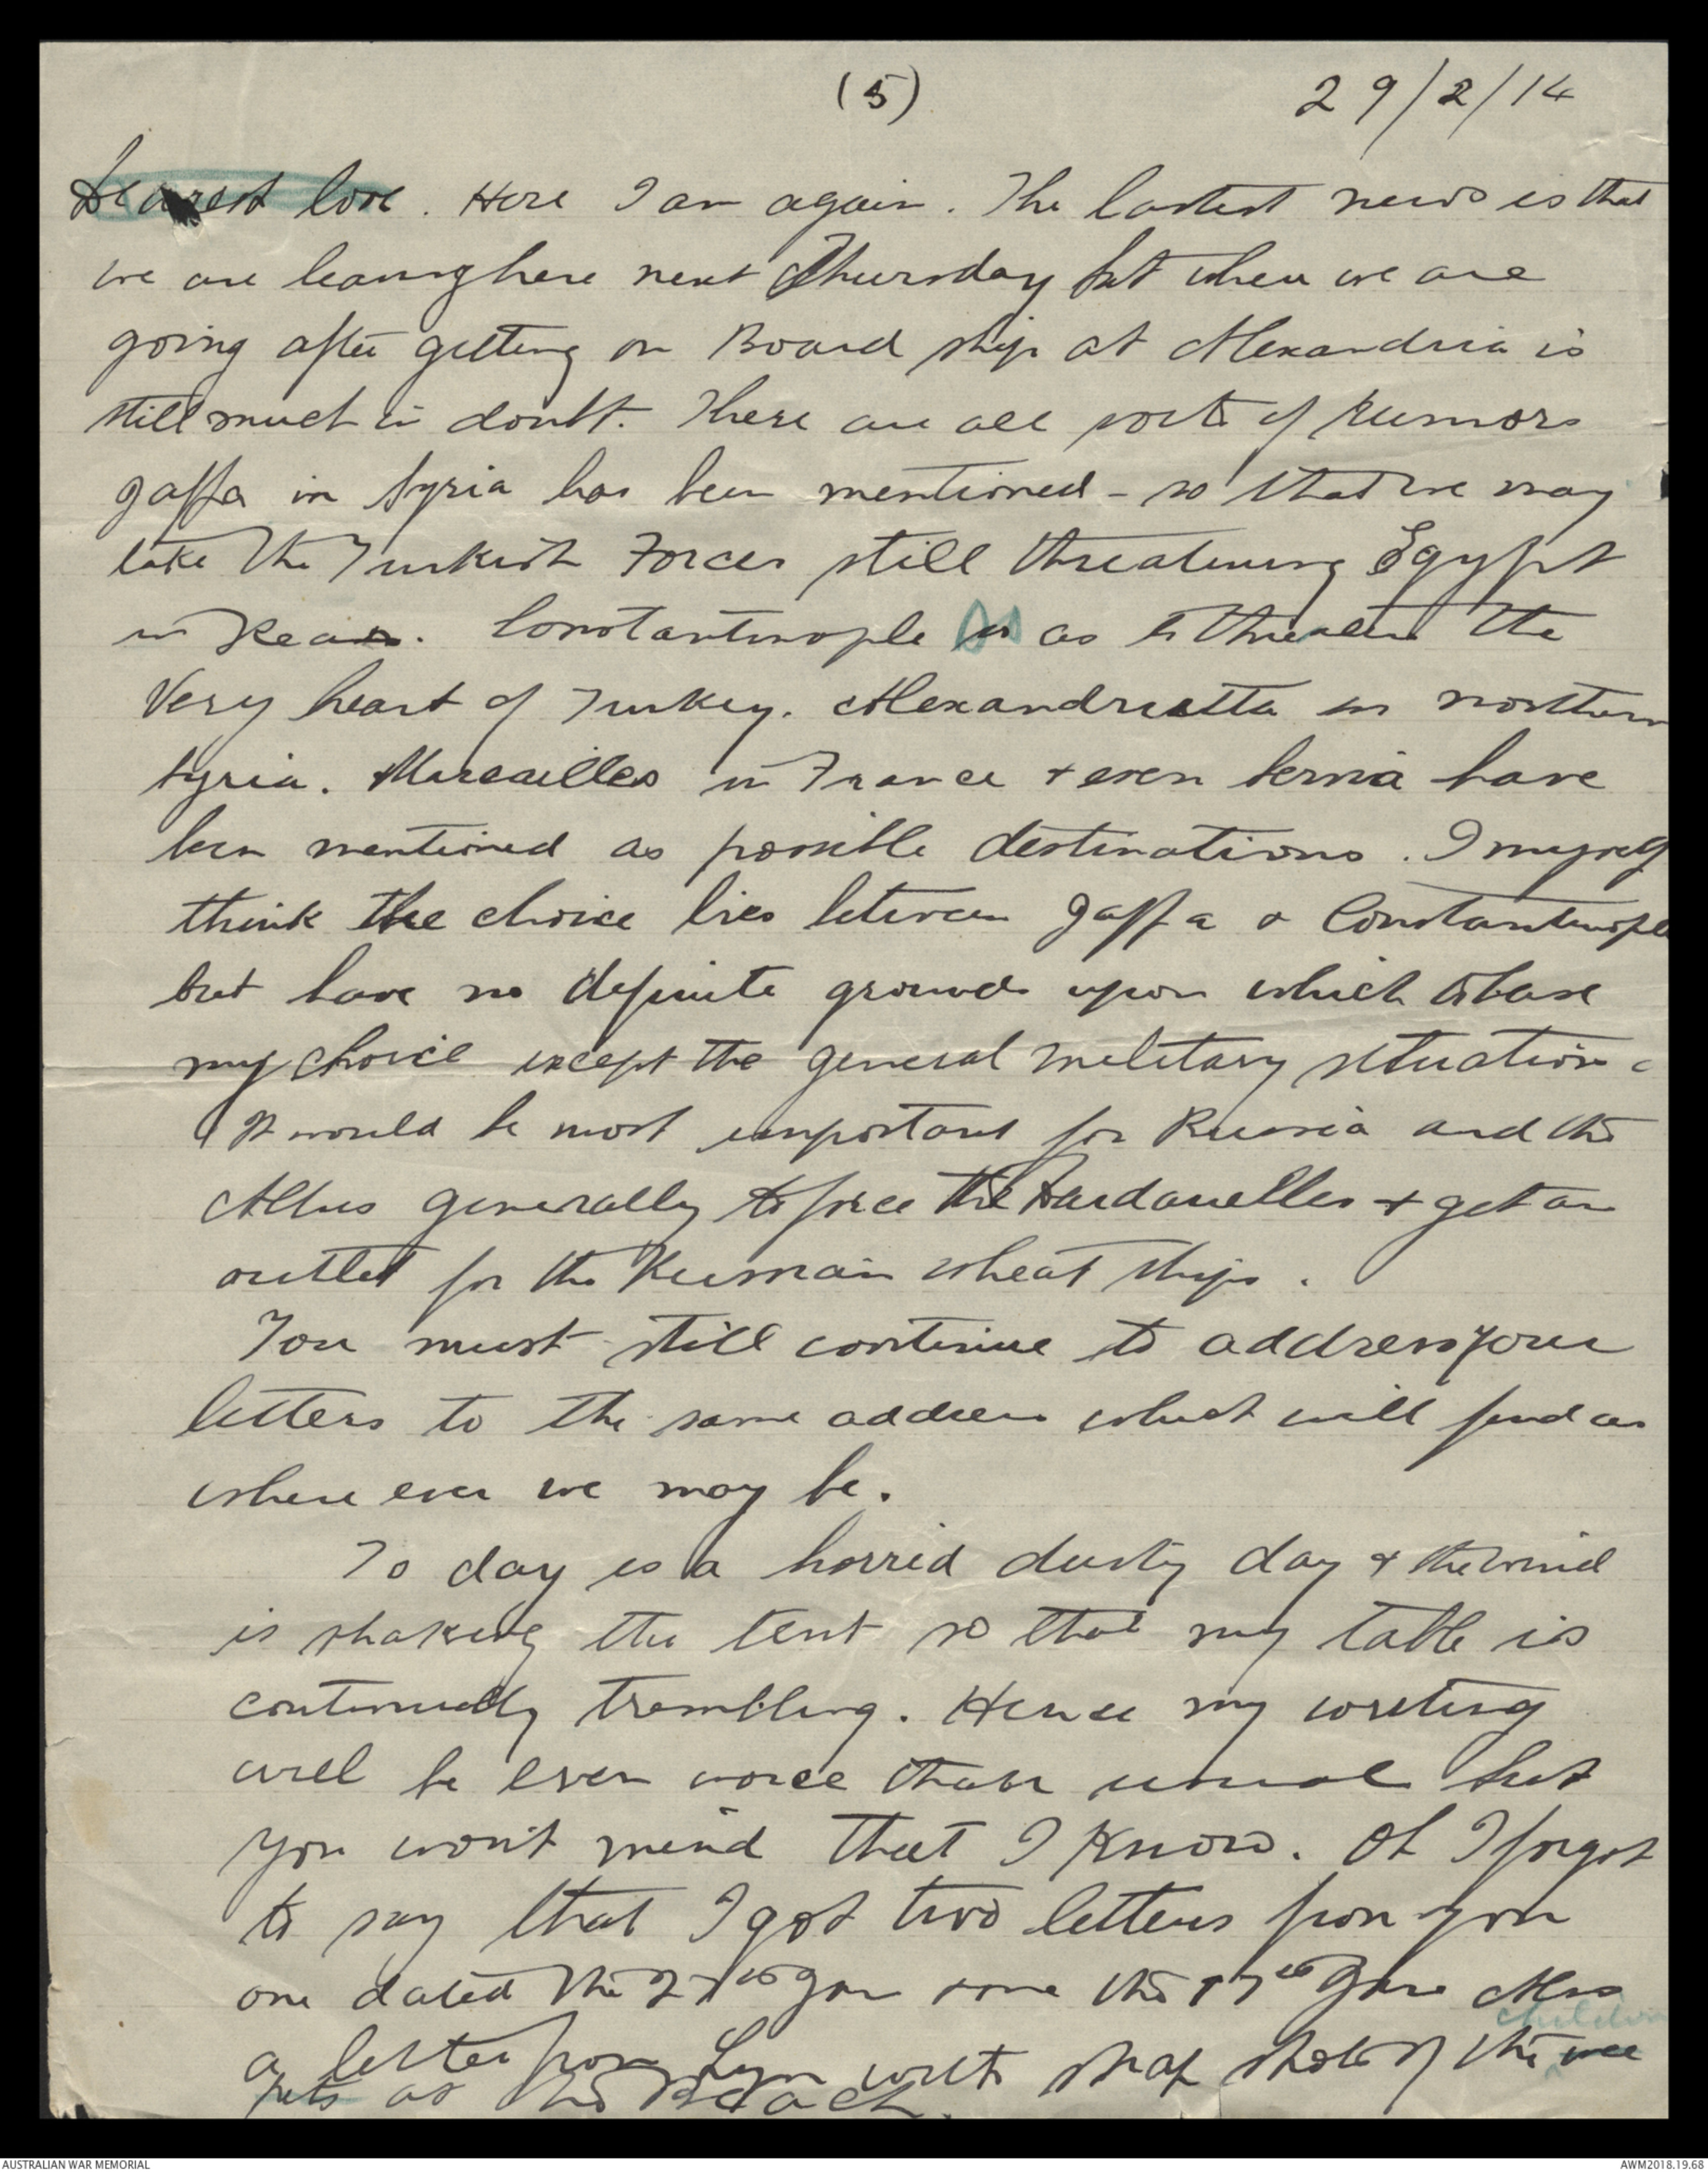 (5)
29/2/14
Dearest love. Here I am again. The lastest news is that
we are leaving here next Thursday but when we are
going after getting on Board ship at Alexandria is
still much in doubt. There are all sorts of Rumors
Jaffa in Syria has been mentioned - so that we may
take the Turkish Forces still threatening Egypt
in Rear. Constantinople so as to threaten the
Very heart of Turkey. Alexandretta in northern
Syria. Marseilles in France + even Servia have
been mentioned as possible destinations. I myself
think the choice lies between Jaffa & Constantinople
but have no definite grounds upon which to base
my choice except the general military situation.
It would be most important for Russia and the
Allies generally to force the Dardanelles + get an
outlet for the Russian wheat ships.
You must still continue to address your
letters to the same address which will find us
where ever we may be.
To day is a horrid dusty day & the wind
is shaking the tent so that my table is
continually trembling. Hence my writing
will be even worse than usual but
you won't mind that I know. Oh I forgot
to say that I got two letters from you
one dated the Jan + one the 17th Jan Also
children
a letter from Lyn with snap shots of the wee
pets at the Beach.
AUSTRALIAN WAR MEMORIAL
AWM2018.19.68